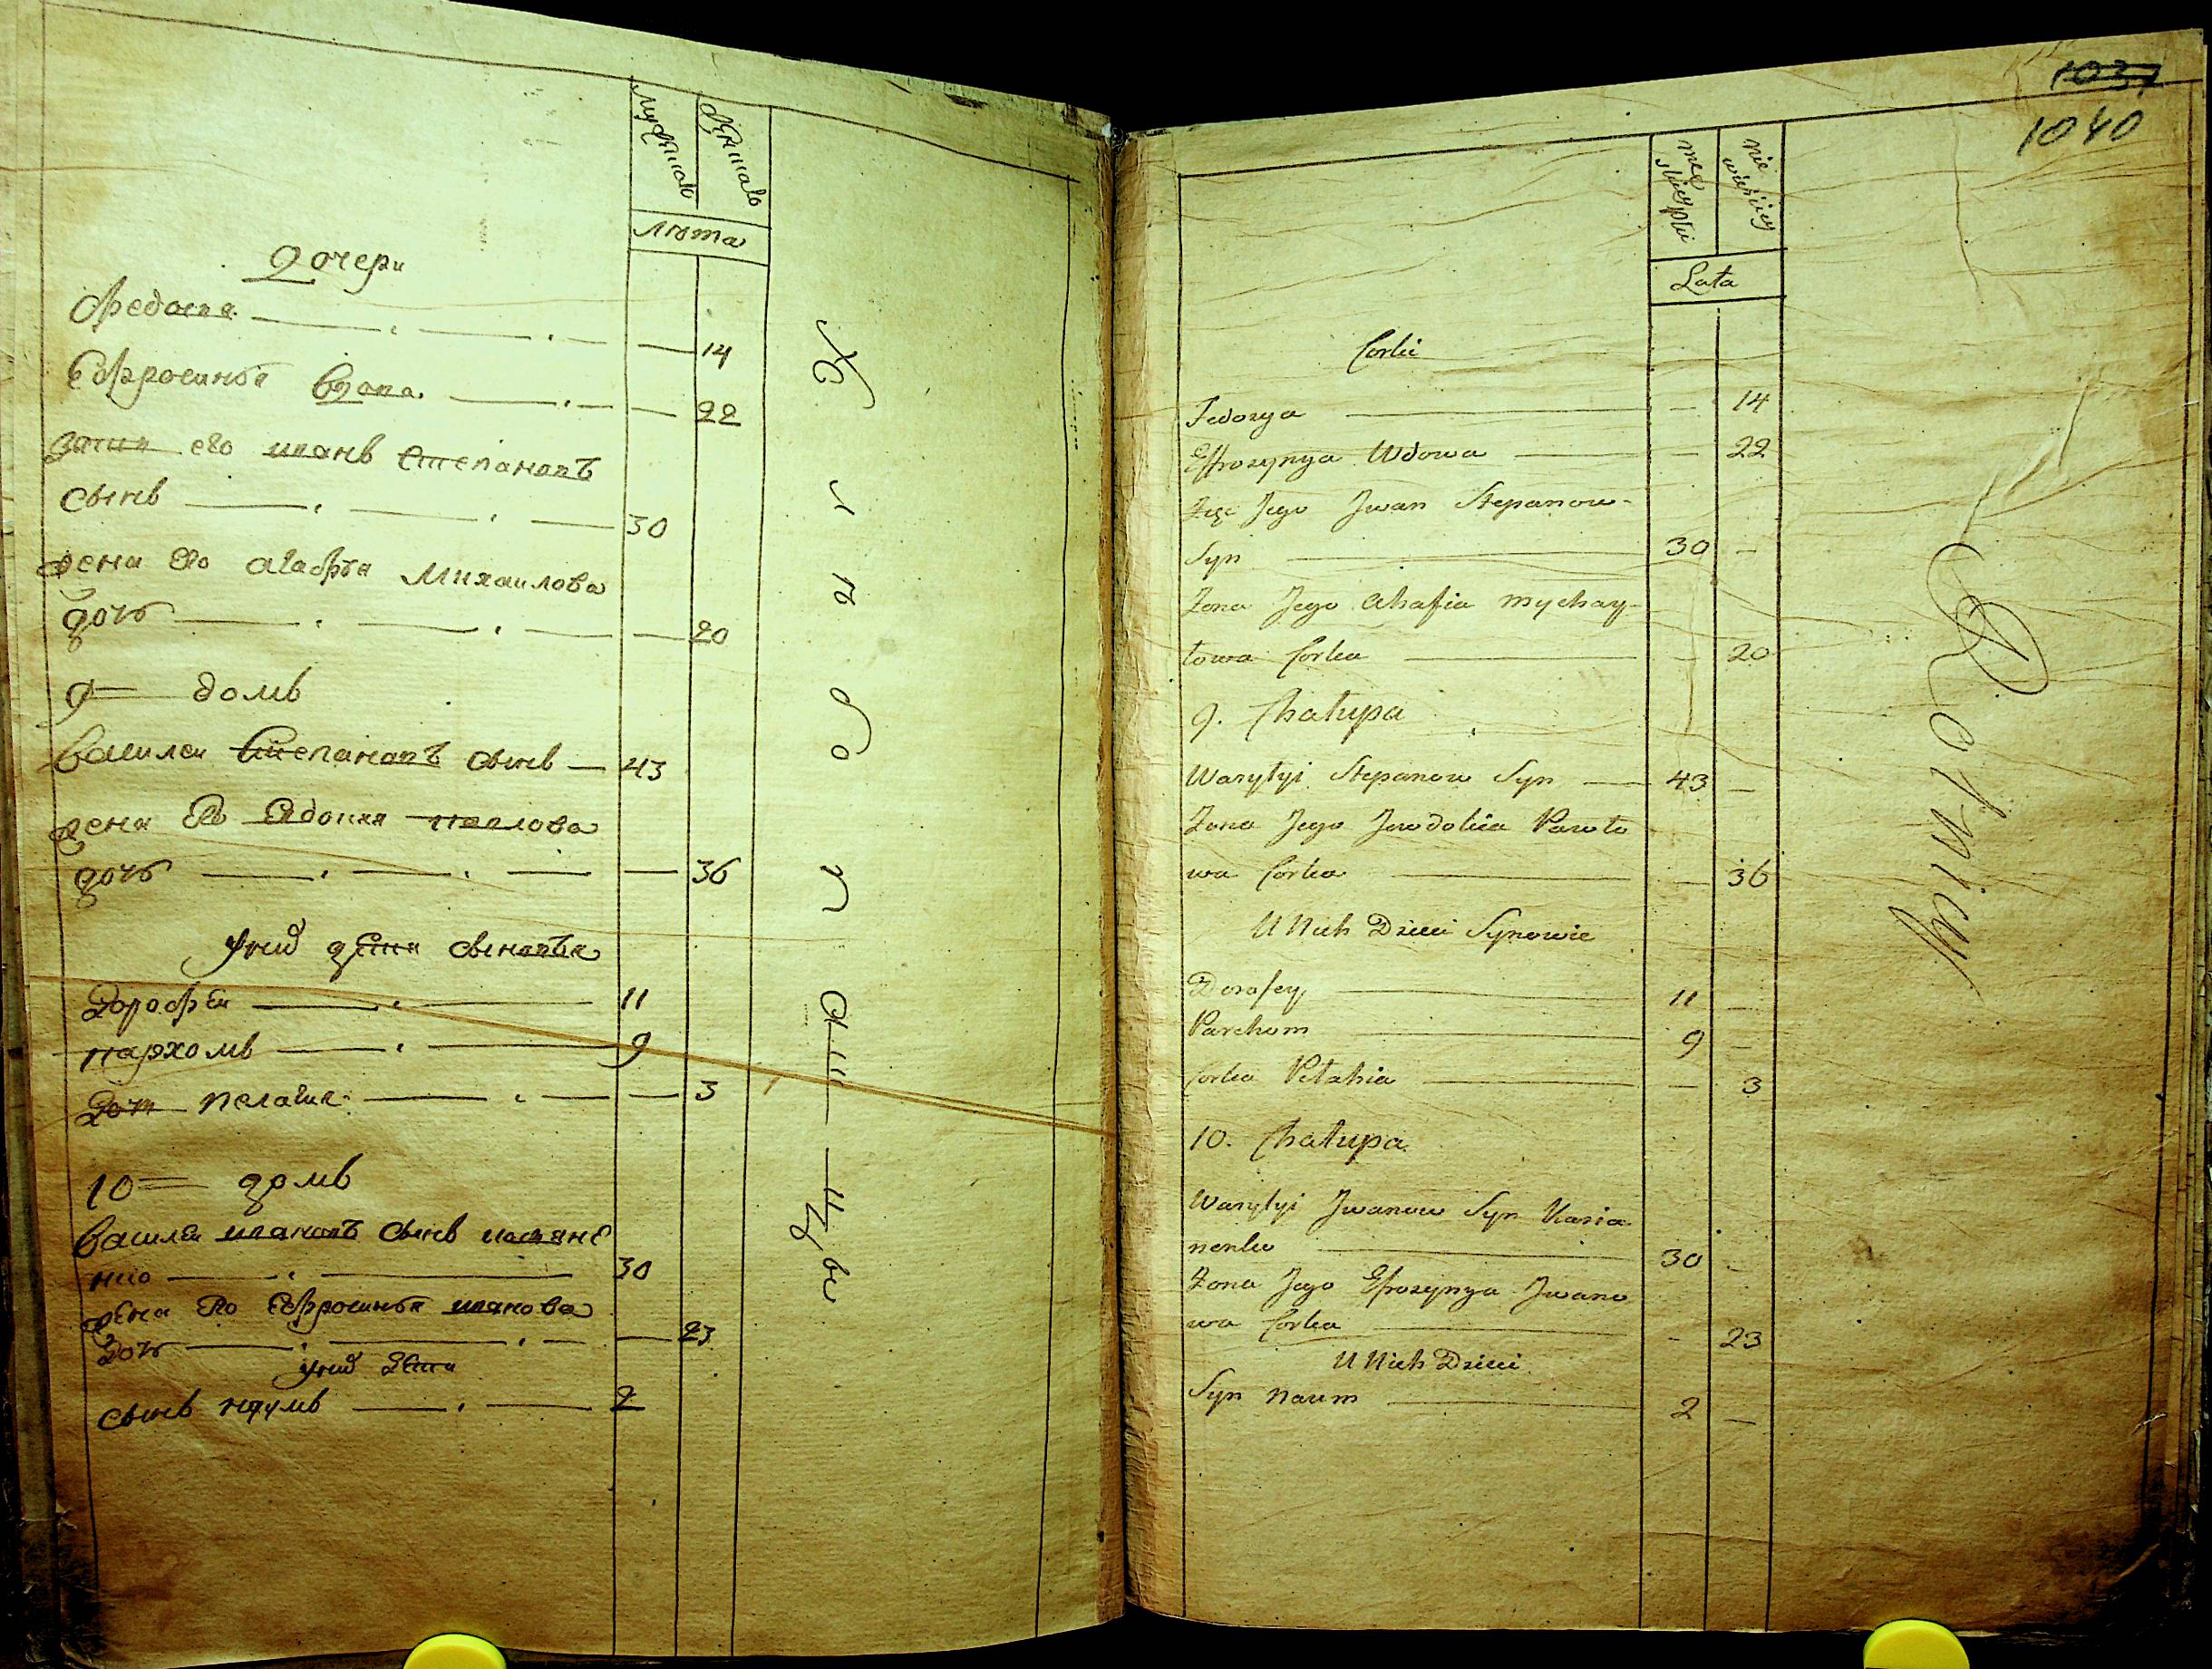 мужска женска
лѣта
Дочери
Федосия 14
Ефросинья вдова 22
зять его иванъ степановъ
сынъ 30
жена его агафья михаилова
дочь 20
9 домъ
василеи степановъ сынъ 43
жена его евдокия павлова
дочь 36
у них дети сыновья
Дорофеи 11
пархомъ 9
Дочь пелагия 3
10 домъ
василеи ивановъ сынъ касяне
нко 30
жена его Ефросинья иванова
дочь 23
у них дети
сынъ наумъ 2
1037
1040
męskiey płci niewieściey
Lata
Corki
Fedosya 14
Effrosynya Wdowa 22
Zięć Jego Jwan Stepanow
Syn 30
Zona Jego Ahafia Mychay-
łowa Corka 20
9. Chałupa
Wasylyi Stepanow Syn 43
Zona Jego Jewdokia Pawło
wa Corka 36
U Nich Dzieci Synowie
Dorofey 11
Parchom 9
Corka Pelahia 3
10. Chałupa
Wasylyi Jwanow Syn Kasia
nenko 30
Zona Jego Efrosynya Jwano
wa Corka 23
U Nich Dzieci
Syn Naum 2
Rolnicy